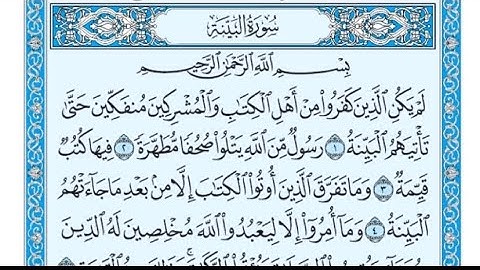 سُورَةُ البَيِّنَةِ
بِسْمِ اللَّهِ الرَّحْمَٰنِ الرَّحِيمِ
لَمْ يَكُنِ الَّذِينَ كَفَرُوا مِنْ أَهْلِ الْكِتَابِ وَالْمُشْرِكِينَ مُنفَكِّينَ حَتَّىٰ
تَأْتِيَهُمُ الْبَيِّنَةُ ١ رَسُولٌ مِّنَ اللَّهِ يَتْلُوا صُحُفًا مُّطَهَّرَةً ٢ فِيهَا كُتُبٌ
قَيِّمَةٌ ٣ وَمَا تَفَرَّقَ الَّذِينَ أُوتُوا الْكِتَابَ إِلَّا مِنۢ بَعْدِ مَا جَاءَتْهُمُ
الْبَيِّنَةُ ٤ وَمَا أُمِرُوا إِلَّا لِيَعْبُدُوا اللَّهَ مُخْلِصِينَ لَهُ الدِّينَ